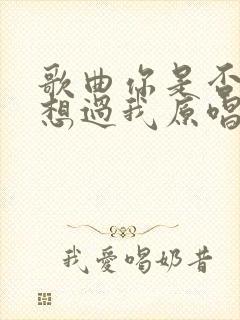 歌曲你是否
想過我原唱
我愛唱奶昔